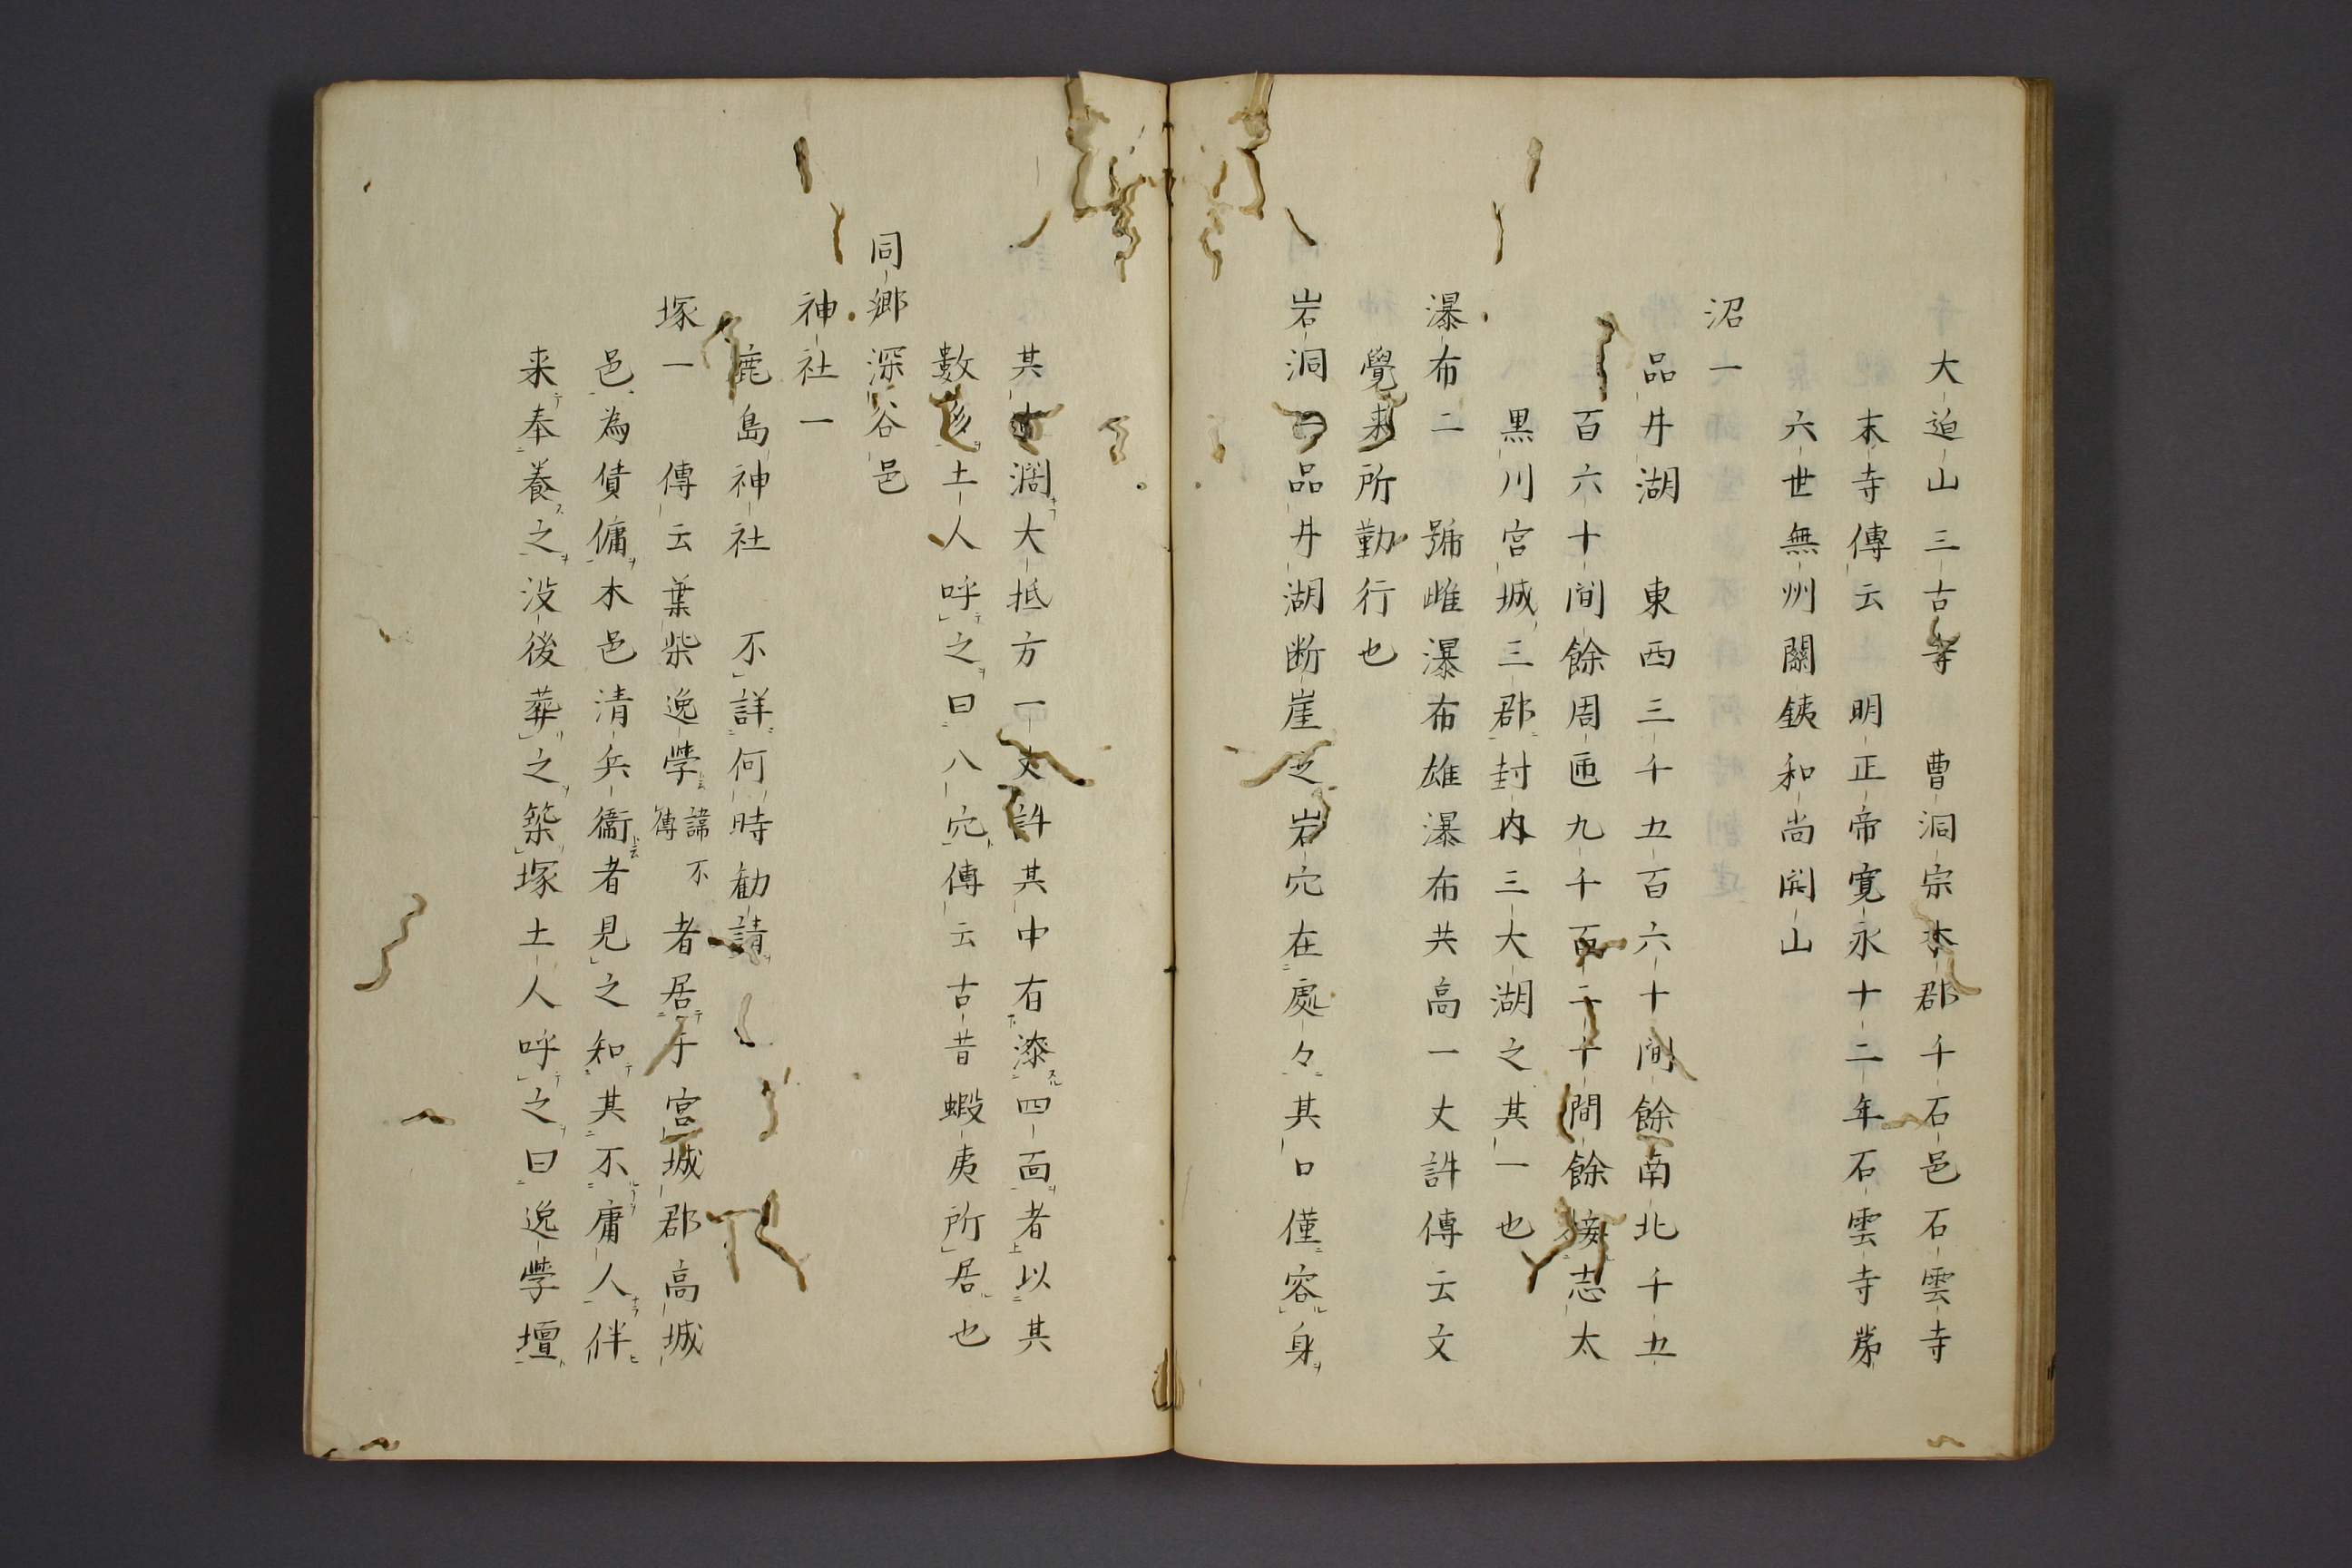 大迫山三古寺　曹洞宗本郡千石邑石雲寺
末寺傳云　明正帝寛永十二年石雲寺第
六世無州關銕和尚開山
沼一
品井湖　東西三千五百六十間餘南北千五
百六十間餘周匝九千百二十間餘接志太
黒川宮城三郡封内三大湖之其一也
瀑布二　號雌瀑布雄瀑布共高一丈許傳云文
覺来所勤行也
岩洞　品井湖断崖之岩穴在處々其口僅容身
其 濶大抵方一丈許其中有漆四面者以其
數多土人呼之曰八穴傳云古昔蝦夷所居也
同郷深谷邑
神社一
鹿島神社　不詳何時勸請
塚一　傳云葉柴逸學諱不傳者居于宮城郡高城
邑為債傭木邑清兵衞者見之知其不庸人伴
来奉養之没後葬之築塚土人呼之曰逸學壇